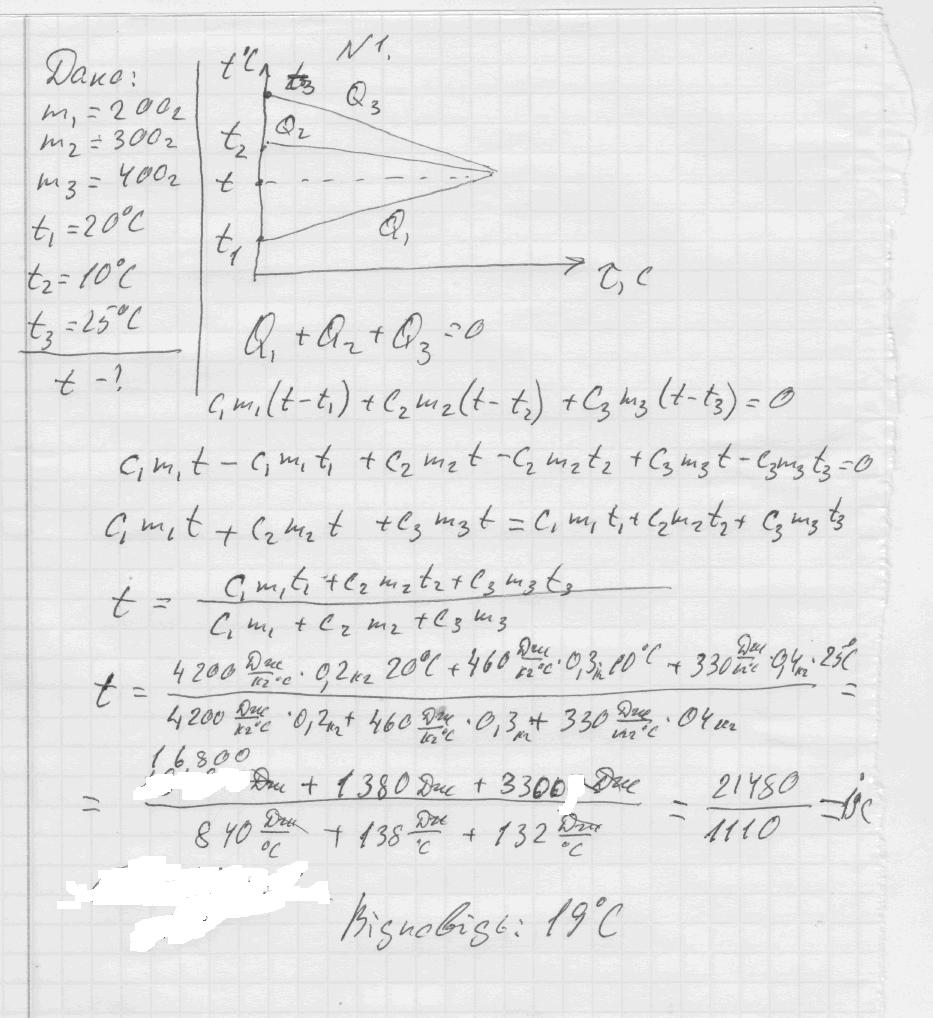 N1.
Дано:
m₁ = 200г
m₂ = 300г
m₃ = 400г
t₁ = 20°C
t₂ = 10°C
t₃ = 25°C
t - ?
t°C
t₃
t₂
t
t₁
Q₃
Q₂
Q₁
τ, c
Q₁ + Q₂ + Q₃ = 0
c₁m₁(t-t₁) + c₂m₂(t-t₂) + c₃m₃(t-t₃) = 0
c₁m₁t - c₁m₁t₁ + c₂m₂t - c₂m₂t₂ + c₃m₃t - c₃m₃t₃ = 0
c₁m₁t + c₂m₂t + c₃m₃t = c₁m₁t₁ + c₂m₂t₂ + c₃m₃t₃
t = (c₁m₁t₁ + c₂m₂t₂ + c₃m₃t₃) / (c₁m₁ + c₂m₂ + c₃m₃)
t = (4200 Дж/кг·°C · 0,2кг 20°C + 460 Дж/кг°C · 0,3кг 10°C + 330 Дж/кг°C · 0,4кг · 25°C) / (4200 Дж/кг°C · 0,2кг + 460 Дж/кг°C · 0,3кг + 330 Дж/кг°C · 04кг) =
= (16800 Дж + 1380 Дж + 3300 Дж) / (840 Дж/°C + 138 Дж/°C + 132 Дж/°C) = 21480 / 1110 =
Відповідь: 19°C